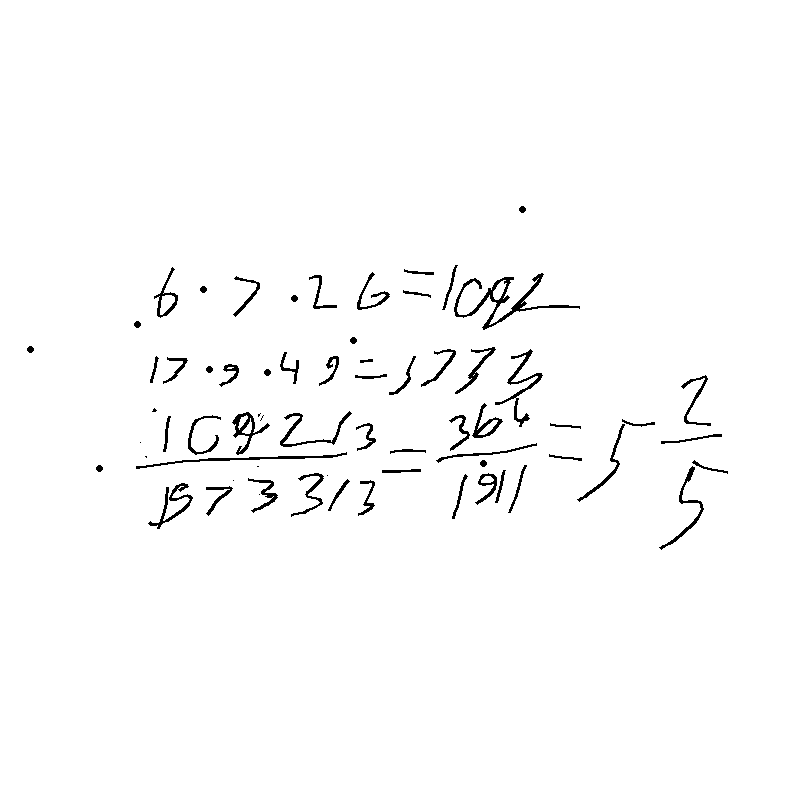 6 · 7 · 26 = 1092
13 · 9 · 49 = 5733
1092/3 / 5733/3 = 364/1911 = 5 2/5